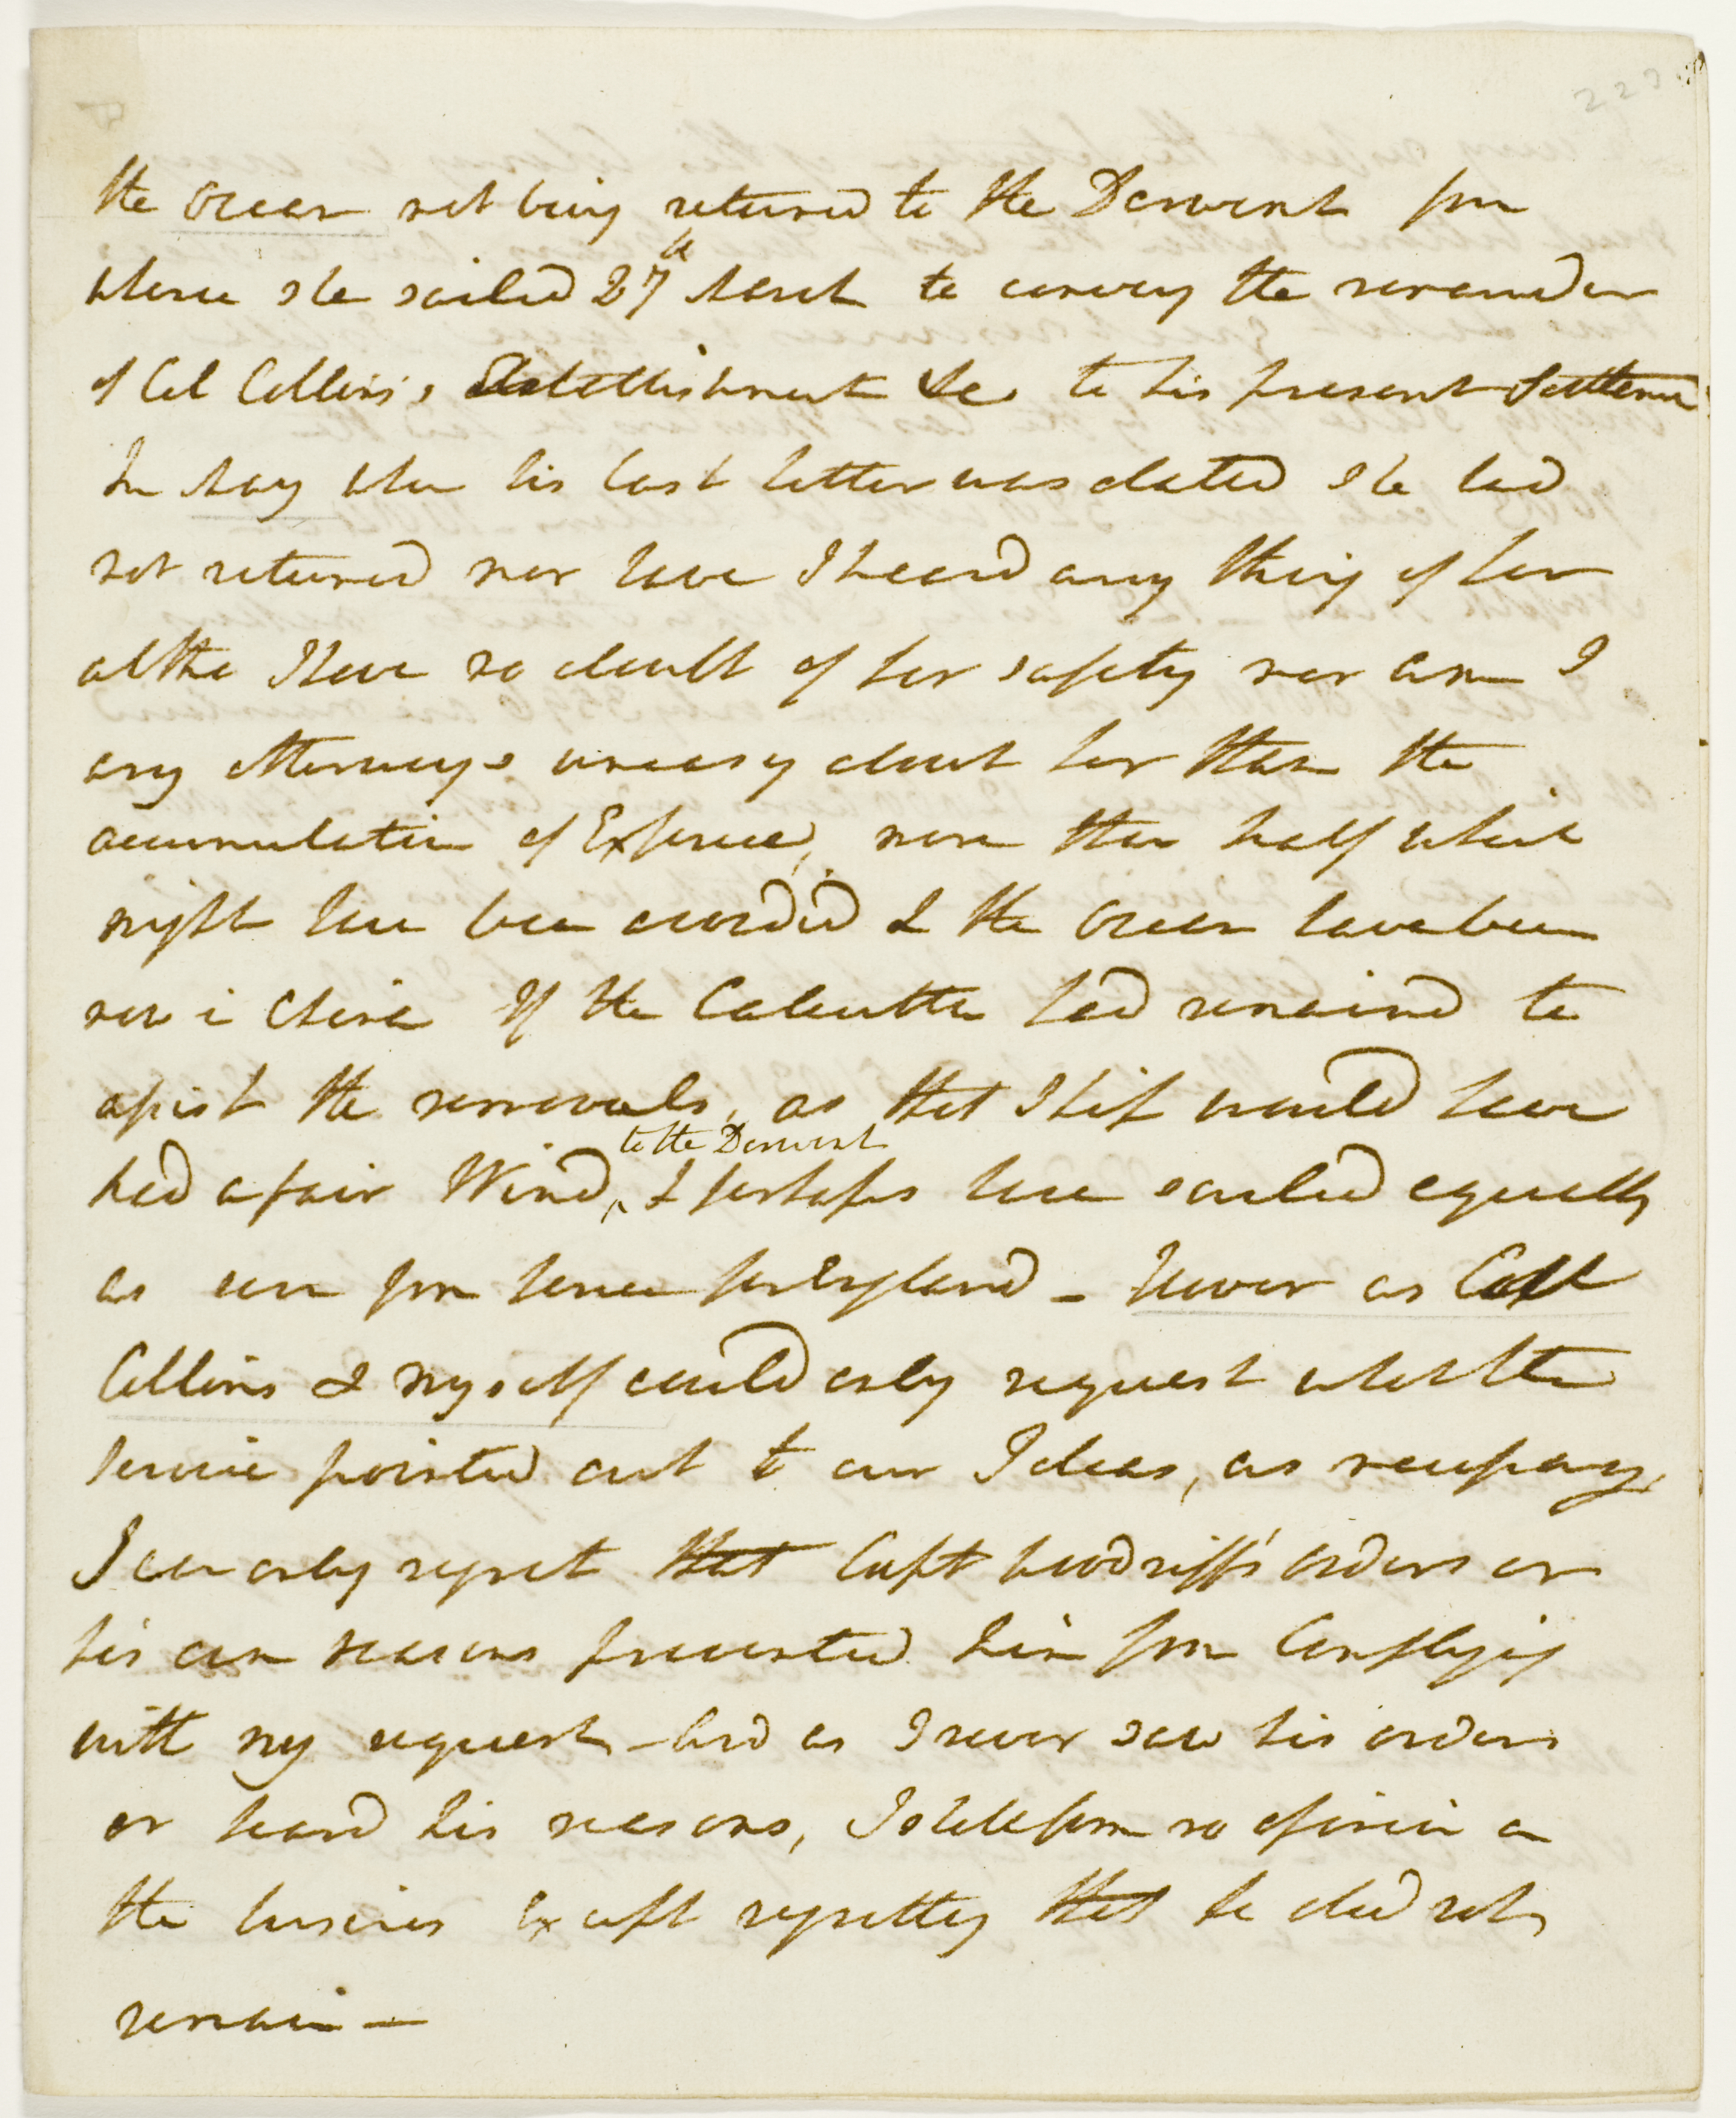 223
the Ocean not being returned to the Derwent from
whence she sailed 27th March to convey the remainder
of Col Collins's Establishment &c. to his present Settlem
In May when his last letter was dated She had
not returned nor have I heard any thing of her
altho I have no doubt of her safety nor am I
any otherways uneasy about her than the
accumulation of Expence, more than half which
might have been avoided & the Ocean have been
now in China If the Calcutta had remained to
assist the removals, as that Ship would have
to the Derwent
had a fair Wind, ^ & perhaps have sailed equally
as soon from hence for England – However as Coll
Collins & myself could only request what the
Service pointed out to our Ideas, as necessary,
I can only regret that Capt Woodriff's orders or
his own reasons prevented him from Complying
with my request – And as I never saw his orders
or heard his reasons, I shall form no opinion on
the business Except regretting that he did not
remain —